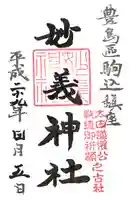 豊島區駒込鎮座
太田道灌公之古社
戦勝御祈願
妙義神社
平成二十九年四月五日